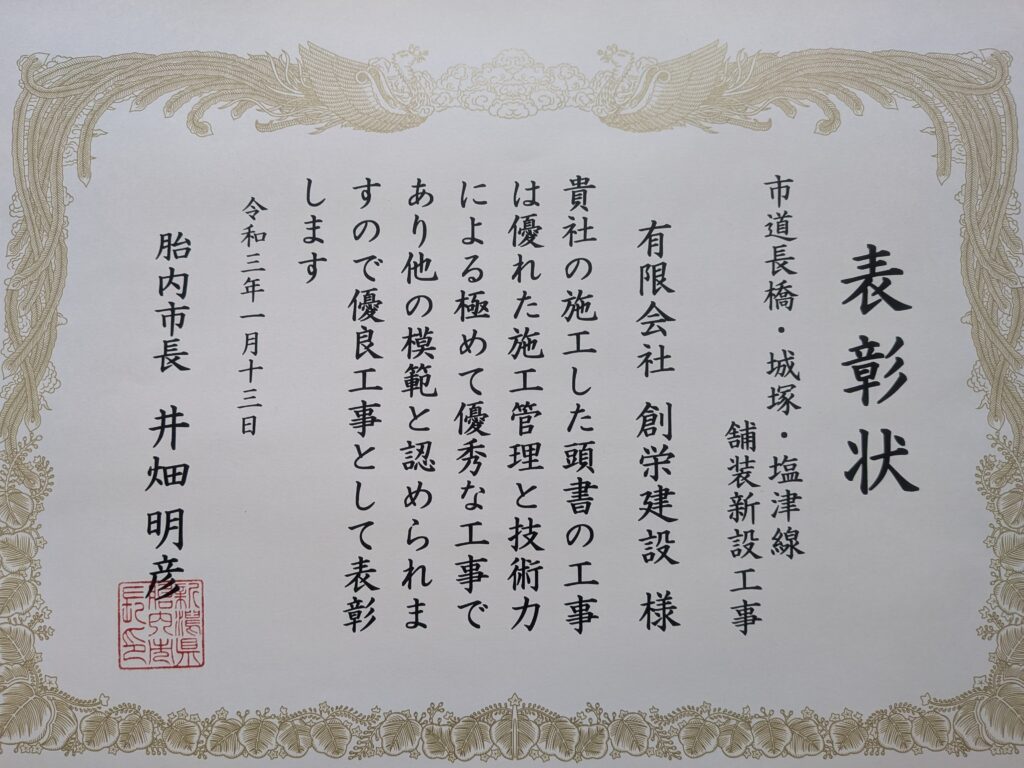 表彰状
市道長橋・城塚・塩津線
舗装新設工事
有限会社 創栄建設 様
貴社の施工した頭書の工事
は優れた施工管理と技術力
による極めて優秀な工事で
あり他の模範と認められま
すので優良工事として表彰
します
令和三年一月十三日
胎内市長 井畑 明彦
新潟県
胎内市
長印